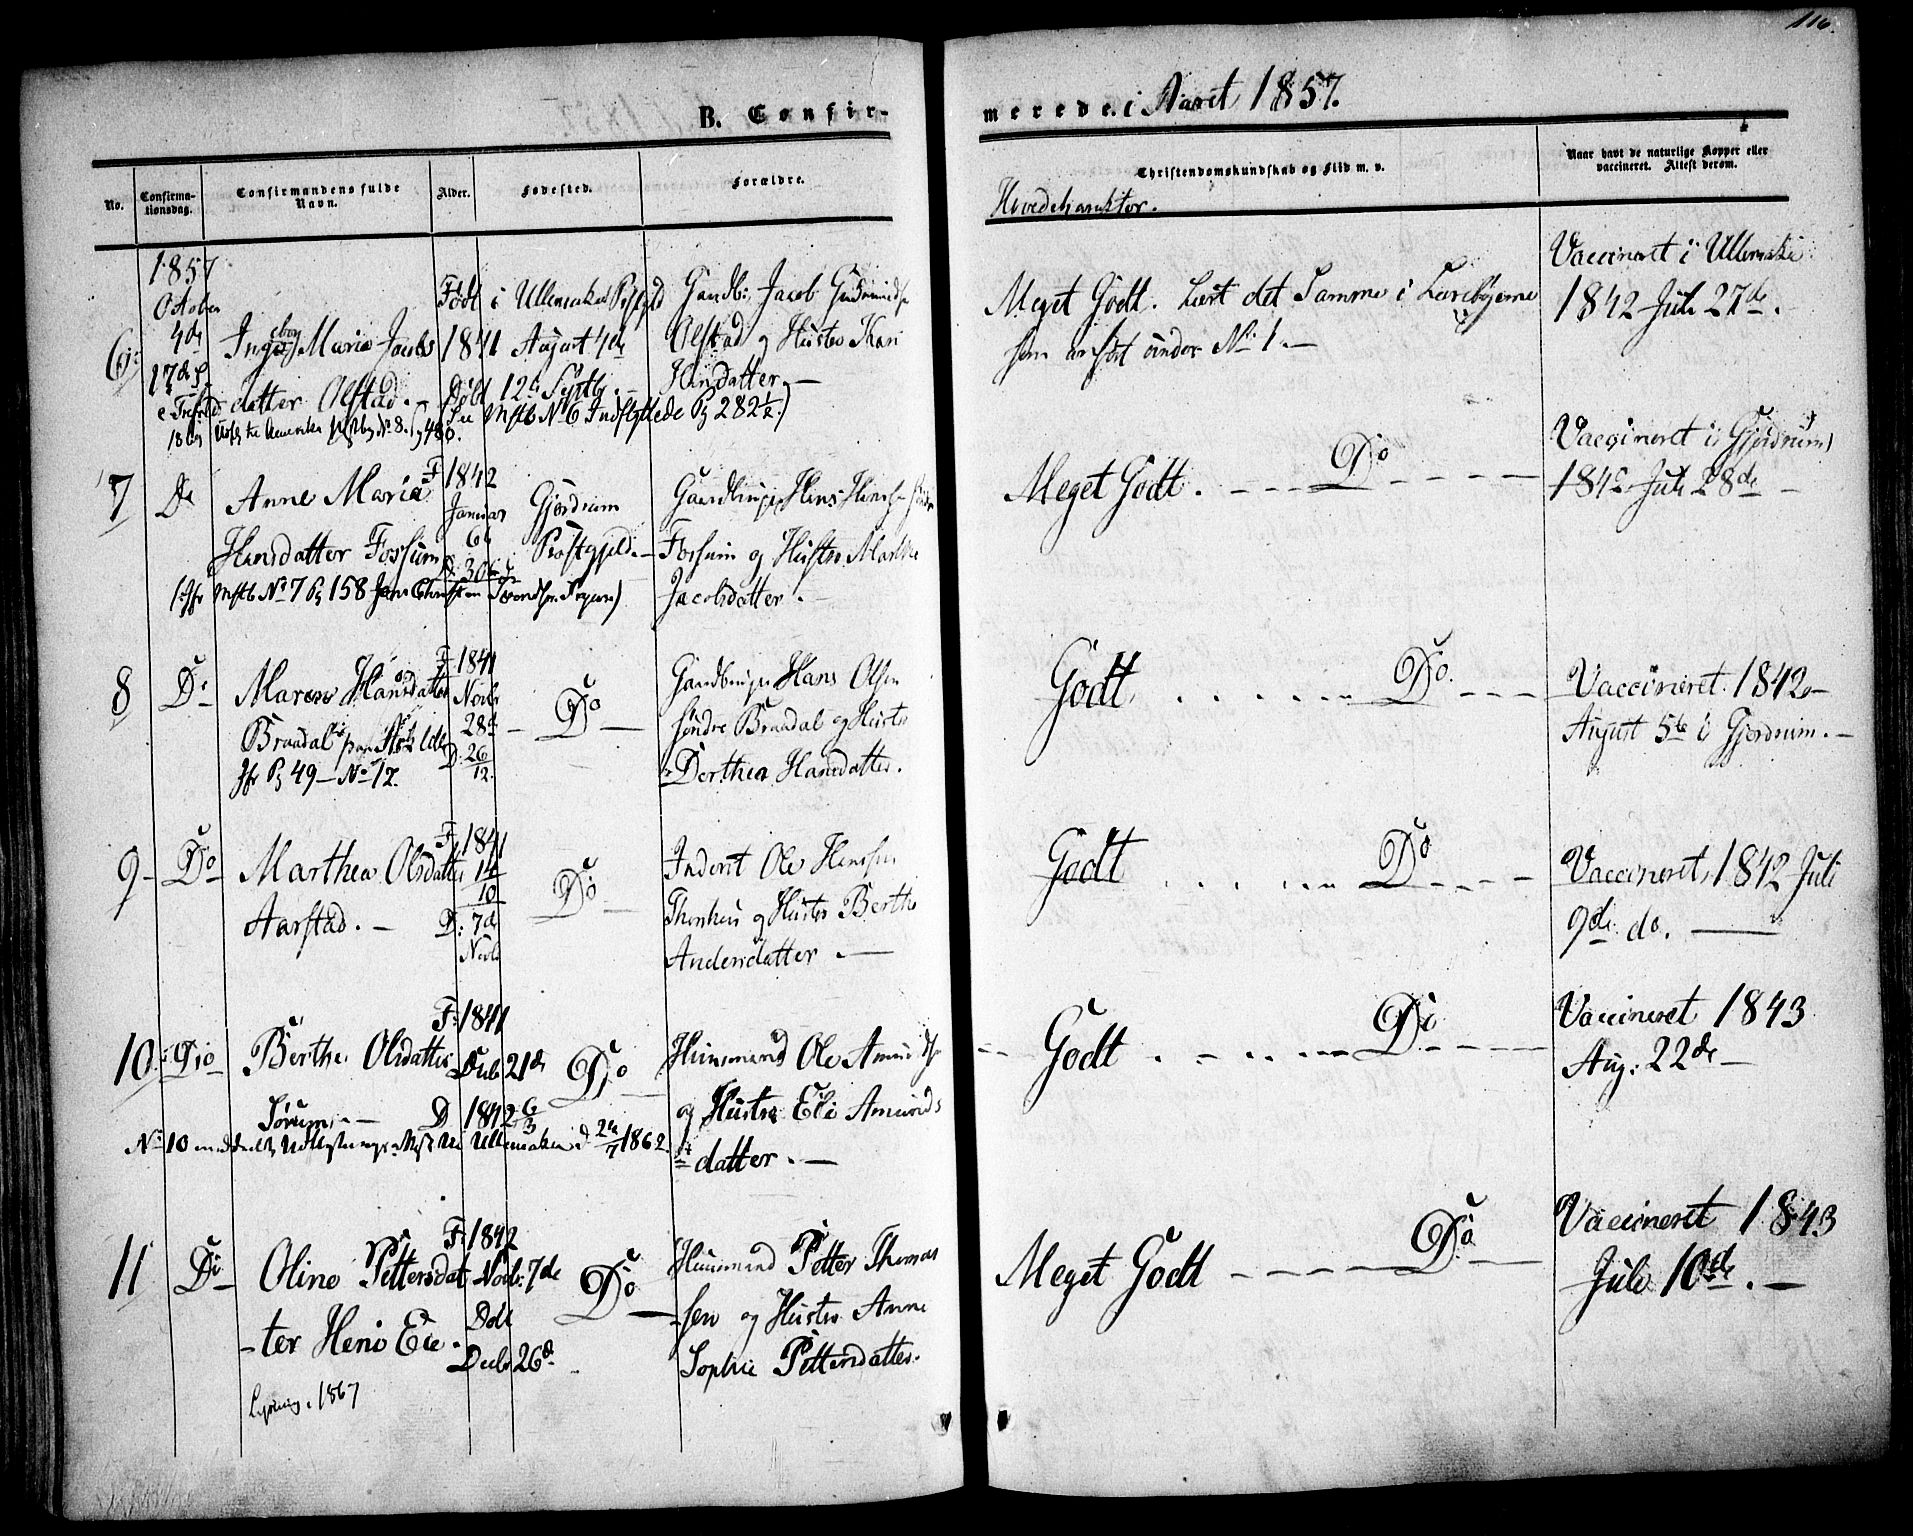 116.
B. Confir-
merede i Aaret 1857.
No.
Confirma-
tionsdag.
Confirmandens fulde
Navn.
Alder.
Fødested.
Forældre.
Christendomskundskab og Flid m. v.
Hovedcharakter.
Naar havt de naturlige Kopper eller
vaccineret. Attest derom.
1857
October
4de
17de p.
e. Trefold.
6
Ingeborg Maria Jacobs
datter Olstad. —
Født i Ullensaker Præstgjd
1841 August 4de
Døbt 12te Septbr. —
Gaardbr. Jacob Gudmunds
Olstad og Hustro Kari
Hansdatter —
No 6 Indflyttede Pg 282
Meget Godt. Lært det Samme i Lærebøgerne
som anført under No 1. —
Vaccineret i Ullensaker
1842 Juli 27de.
7
Do
Anne Maria
Hansdatter Fossum
F 1842
Januar
6te
D. 30
Gjerdrum
Præstgjeld. —
Gaardbruger Hans Hansen
Fossum og Hustro Marthe
Jacobsdatter. —
No 7 Pg 158
Meget Godt. — Do —
Vaccineret i Gjerdrum
1842 Juli 28de —
8
Do —
Maren Hansdatter
Braadal
Pg 49 — No 12.
F. 1841
Novbr
28de
D. 26/12.
— Do —
Gaardbruger Hans Olsen
søndre Braadal og Hustro
Dorthea Hansdatter.
Godt. Do. —
Vaccineret 1842 —
August 5te i Gjerdrum. —
9 —
Do —
Marthea Olsdatter
Aarstad. —
F. 1841
14/10
D: 7de
Novbr
Do —
Inderst Ole Hansen
og Hustro Berthe
Andersdatter —
Godt Do —
Vaccineret 1842 Juli
9de do. —
10
Do —
Berthe Olsdatter
Sørum. —
F. 1841
Decbr 21de
D 1842 6/3
Do —
Huusmand Ole Amunds
og Hustro Eli Amunds
datter. —
No 10 Ullensaker 1862.
Godt. Do —
Vaccineret 1843
Aug: 22de —
11
Do —
Oline Pettersdat
-ter Heni Eie.
F. 1842
Novbr: 7de
Døbt
Decbr 26de
Do —
Huusmand Petter Thomas
-sen og Hustro Anne
Sophie Pettersdatter.
1867
Meget Godt — Do —
Vaccineret 1843
Juli 10de. —